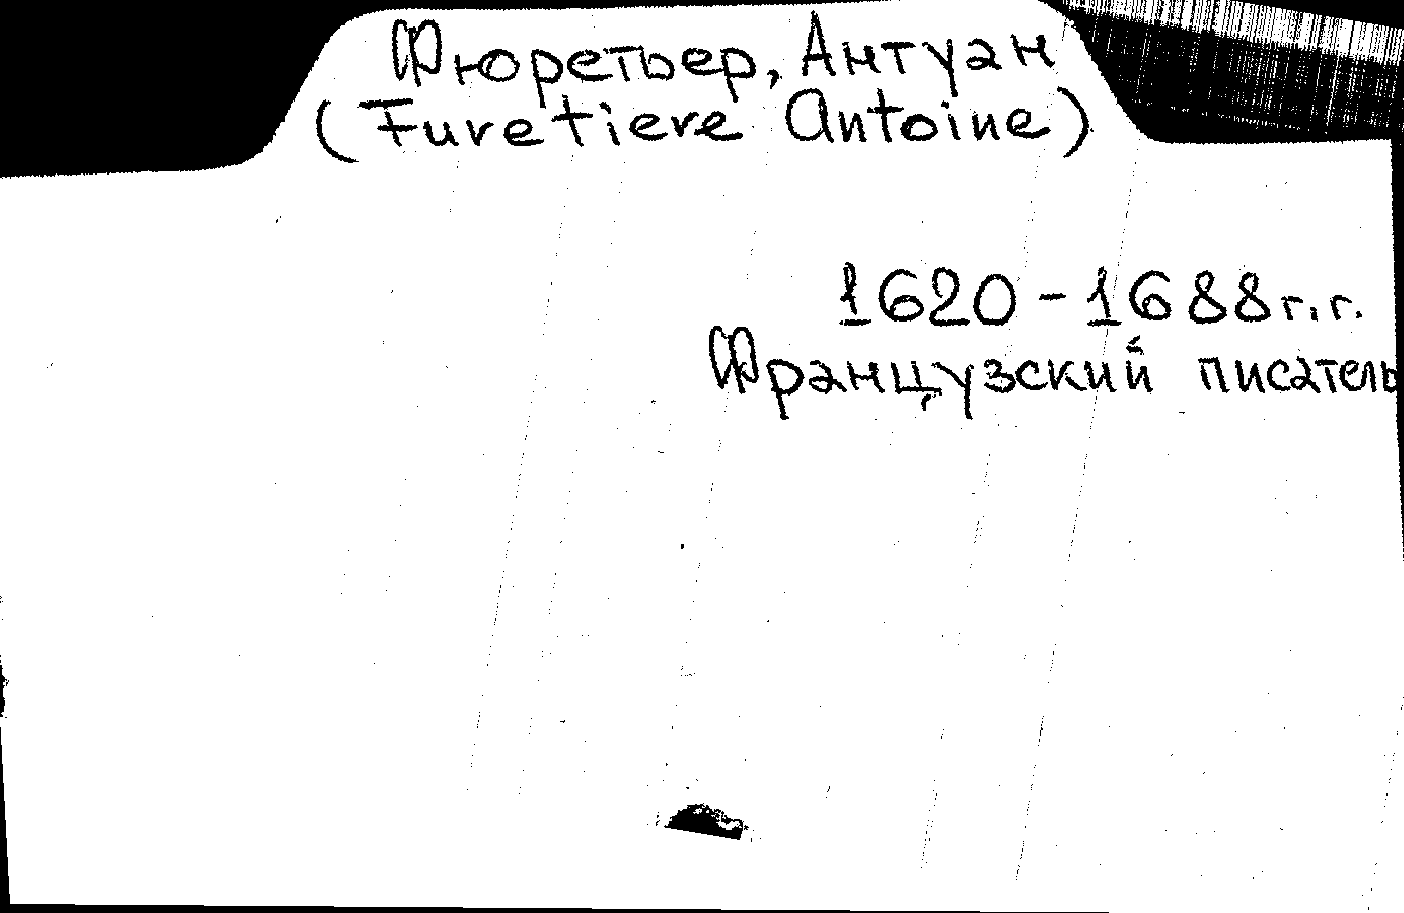 Фюретьер, Антуан
(Furetiere Antoine)
1620-1688г.г.
Французский писатель